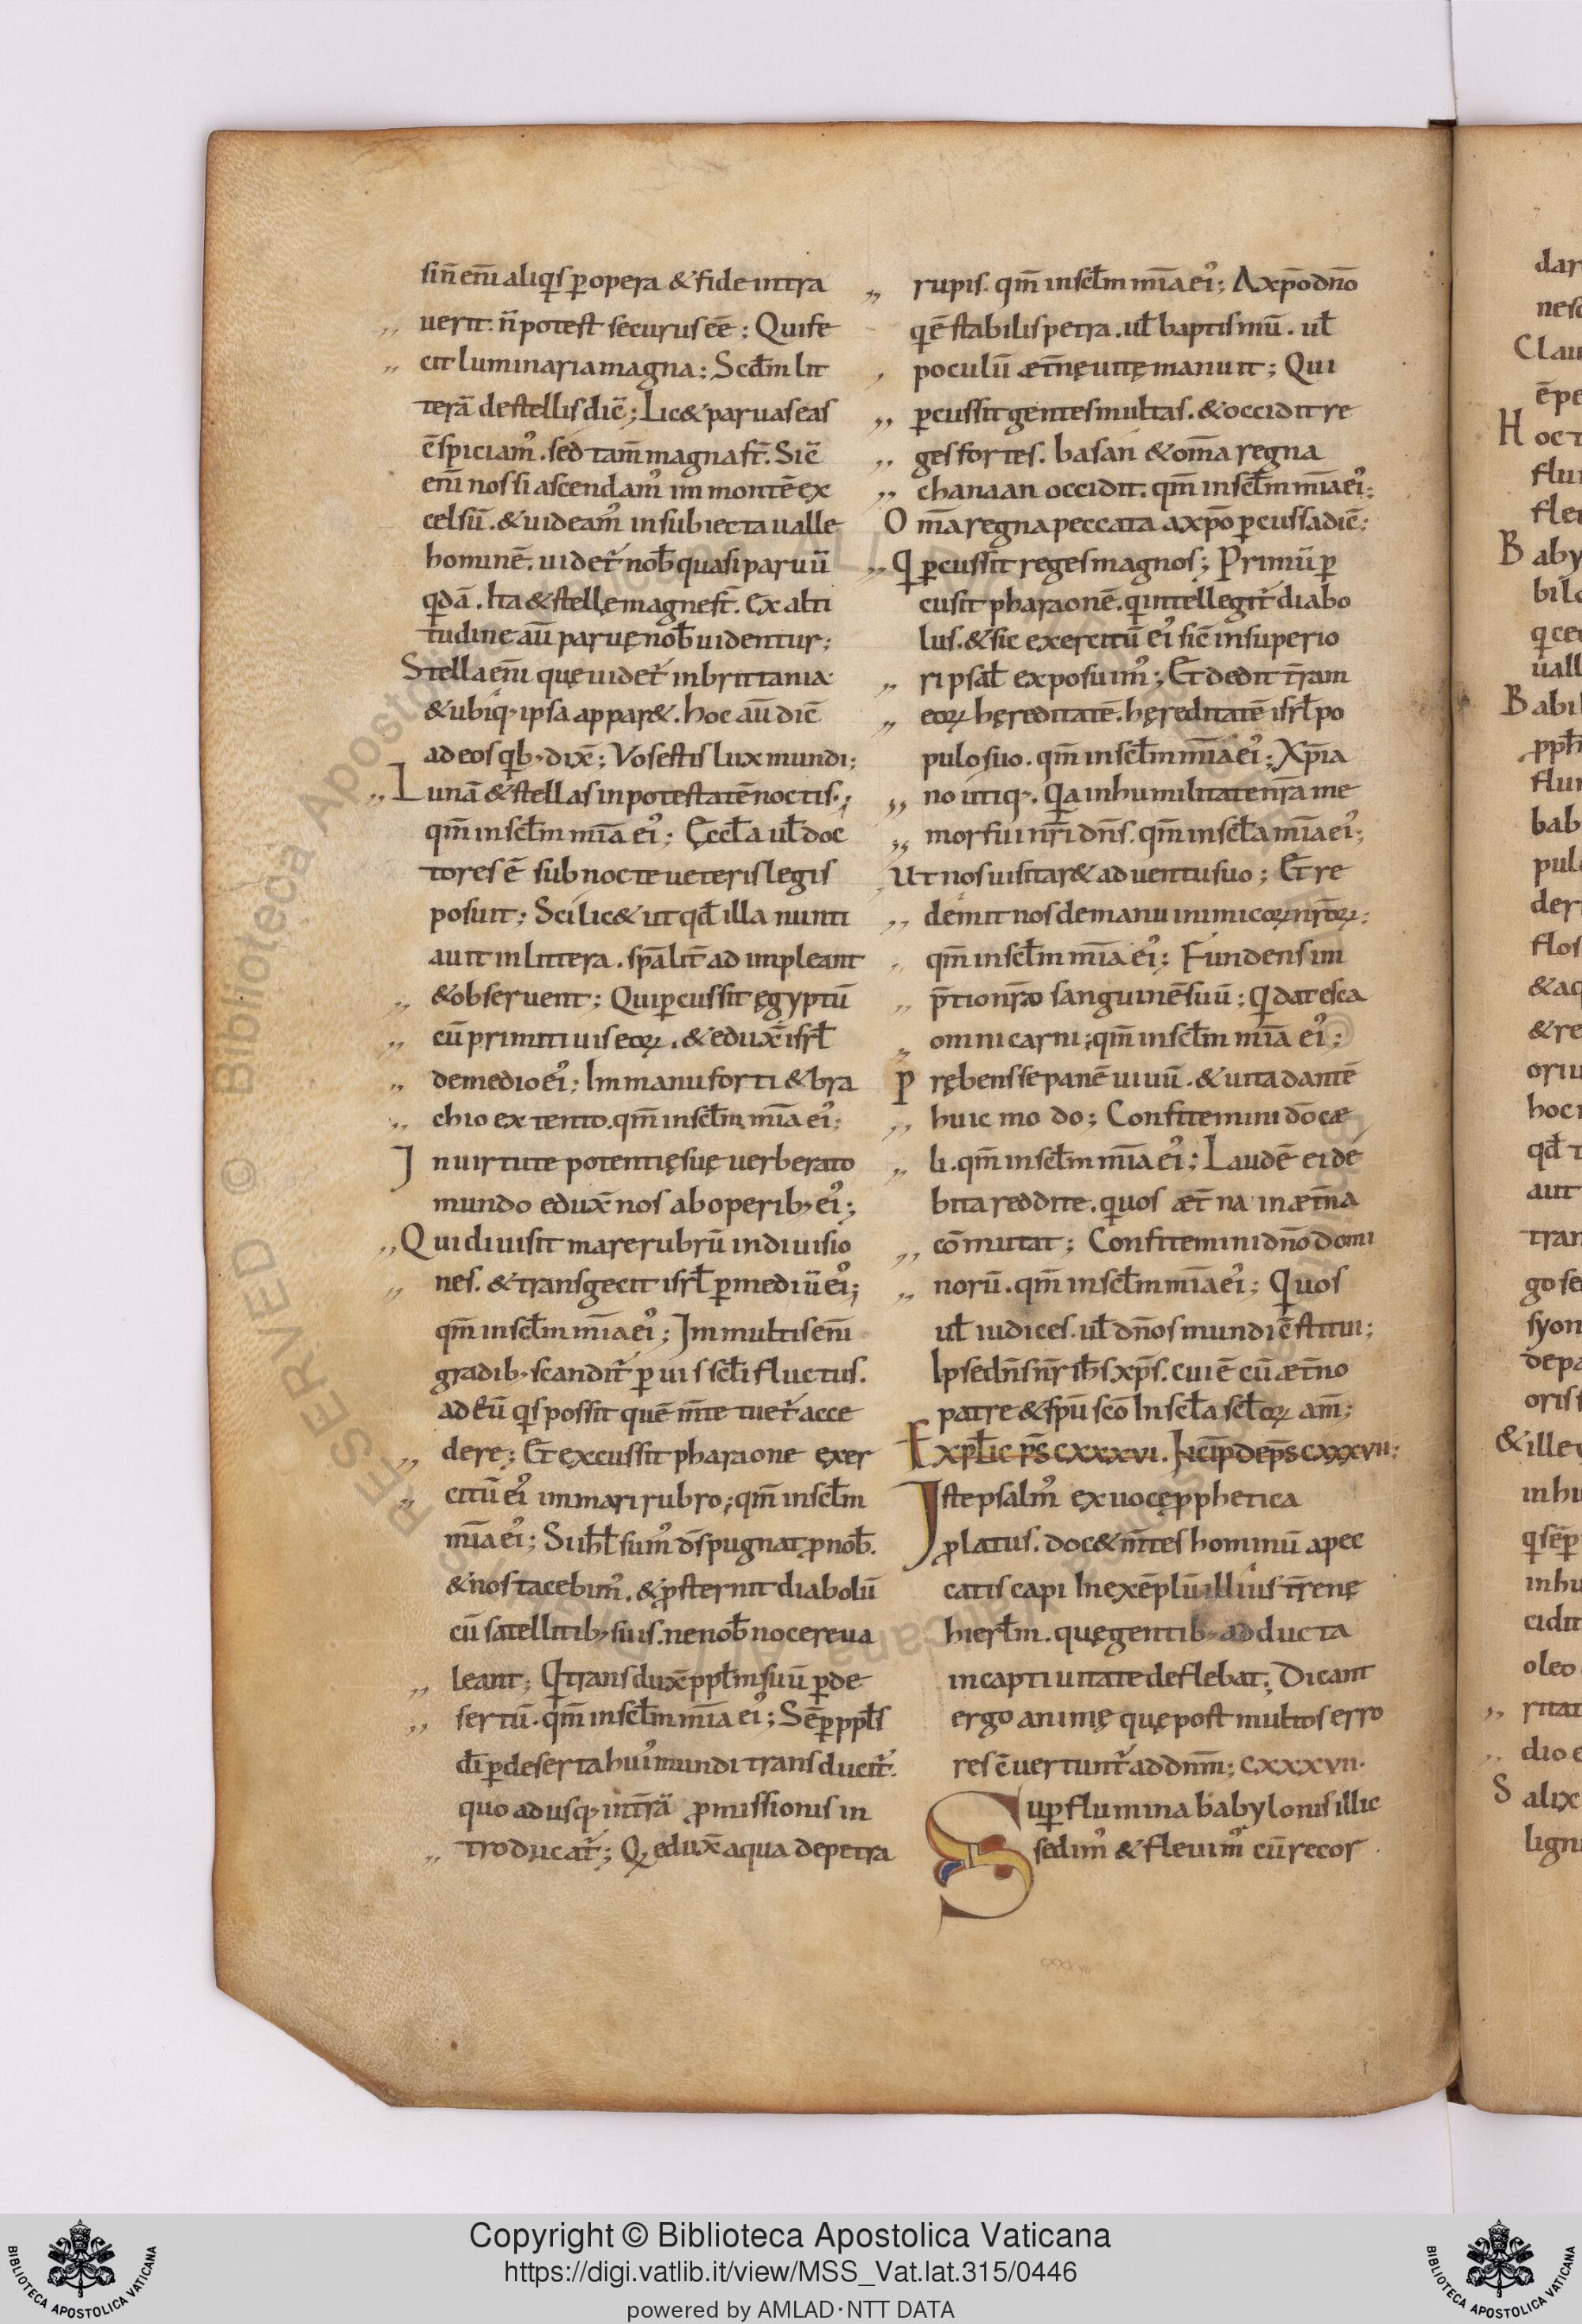 sin̄ em̄ aliqͥs ꝑ opera & fide intra
uerit. n̄ potest securus eē; Qui fe
cit luminaria magna; Scđm lit
terā de stellis dic̄; Lic& paruas eas
c̄spiciamꝰ. sed tam̄ magna st̄. Sic̄
em̄ nos si ascendamꝰ im montē ex
celsū. & uideamꝰ in subiecta ualle
hominē. uidet̄ nob̄ quasi paruū
qͥdā. Ita & stellę magne st̄. Ex alti
tudine aū paruę nob̄ uidentur;
Stella em̄ quę uidet̄ in brittania
& ubiq; ipsa appar&. hoc aū dic̄
ad eos qͥb; dix̄; Vos estis lux mundi;
Lunā & stellas in potestatē noctis;
qm̄ in scl̄m mīa eiꝰ; Ęccl̄a ul̄ doc
tores ē sub nocte ueteris legis
posuit; Scilic& ut qđ illa nunti
auit in littera. spālit̄ adimpleant
& obseruent; Qui ꝑcussit ęgyptū
cū primitiuis eoꝝ. & edux̄ isrl̄
de medio eiꝰ; Im manu forti & bra
chio extento. qm̄ in scl̄m mīa eiꝰ;
In uirtute potentię suę uerberato
mundo edux̄ nos ab operib; eiꝰ;
Qui diuisit mare rubrū in diuisio
nes. & transgecit isrl̄ ꝑ mediū eiꝰ;
qm̄ in scl̄m mīa eiꝰ; Im multis em̄
gradib; scandit̄ ꝑ uis scl̄i fluctus.
ad eū qͥs possit quē m̄te tuet̄ acce
dere; Et excussit pharaone exer
citū eiꝰ im mari rubro; qm̄ in scl̄m
mīa eiꝰ; Si hūl sumꝰ d̄s pugnat ꝓ nob̄.
& nos tacebimꝰ. & ꝓsternit diabolū
cū satellitib; suis. ne nob̄ nocere ua
leant; Qͥ transdux̄ ppl̄m suū ꝑ de
sertū. qm̄ in scl̄m mīa eiꝰ; Sēꝑ ppl̄s
dī ꝑ deserta huiꝰ mundi transducit̄.
quo adusq; in t̄rā ꝓmissionis in
troducat̄; Qͥ edux̄ aqua de petra
rupis. qm̄ in scl̄m mīa eiꝰ; A xp̄o dn̄o
qͥ ē stabilis petra. ul̄ baptismū. ul̄
poculū æt̄nę uitę manuit; Qui
ꝑcussit gentes multas. & occidit re
ges fortes. basan & om̄a regna
chanaan occidit. qm̄ in scl̄m mīa eiꝰ;
Om̄a regna peccata a xp̄o ꝑcussa dic̄;
Qͥ ꝑcussit reges magnos; Primū ꝑ
cusit pharaonē. qͥ intellegit̄ diabo
lus. & sic exercitū eiꝰ sic̄ in superio
ri psal̄ exposuimꝰ; Et dedit t̄ram
eoꝝ hęreditatē. hęreditatē isrl̄ po
pulo suo. qm̄ in scl̄m mīa eiꝰ; Xp̄ia
no utiq;. Qͥa in humilitate nr̄a me
mor fuit nr̄i dn̄s. qm̄ in scl̄a mīa eiꝰ;
Ut nos uisitar& aduentu suo; Et re
demit nos de manu inimicoꝝ nr̄oꝝ;
qm̄ in scl̄m mīa eiꝰ; Fundens im
p̄tio nr̄o sanguinē suū; Qͥ dat esca
omni carni; qm̄ in scl̄m mīa eiꝰ;
Prębens se panē uiuū. & uita dantē
huic modo; Confitemini dō cæ
li. qm̄ in scl̄m mīa eiꝰ; Laudē ei de
bita reddite. quos æt̄na in æt̄na
cōmutat; Confitemini dn̄o domi
norū. qm̄ in scl̄m mīa eiꝰ; Quos
ul̄ iudices. ul̄ dn̄os mundi c̄stitui;
Ipse dn̄s nr̄ ih̄s xp̄s. cui ē cū æt̄no
patre & sp̄u sc̄o In scl̄a scl̄oꝝ am̄;
Expl̄ic ps̄ cxxxvi. Incip̄ de ps̄ cxxxvii;
Iste psalmꝰ ex uocę ꝓphetica
ꝓlatus. doc& m̄tes hominū a pec
catis capi In exēplū illius t̄renę
hierl̄m. quę gentib; adducta
in captiuitate deflebat; Dicant
ergo animę quę post multos erro
res c̄uertunt̄ ad dnm̄; cxxxvii.
Suꝑ flumina babylonis illic
sedimꝰ & fleuimꝰ cū recor
cxxxvii
dar
nesc
Clau
ēpe
Hoc t
flu
fle
Baby
bilo
qͥ ce
uall
Babi
pph̄
flu
bab
pul
der
flos
& aq
& re
oriu
hoc
qđ t
aut
tran
go se
syon
de pa
oris
& ille
in hu
qͥ sēꝑ
in hu
cidit
oleo
ritat
dio e
Salix
lign
Copyright © Biblioteca Apostolica Vaticana
https://digi.vatlib.it/view/MSS_Vat.lat.315/0446
powered by AMLAD·NTT DATA
BIBLIOTECA APOSTOLICA VATICANA
BIBLIOTECA APOSTOLICA VATICANA